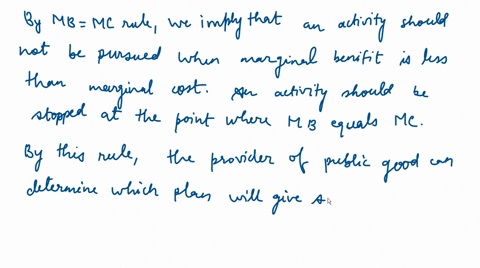 By MB = MC rule, we imply that an activity should
not be pursued when marginal benifit is less
than marginal cost. An activity should be
stopped at the point where MB equals MC.
By this rule, the provider of public good can
determine which plan will give